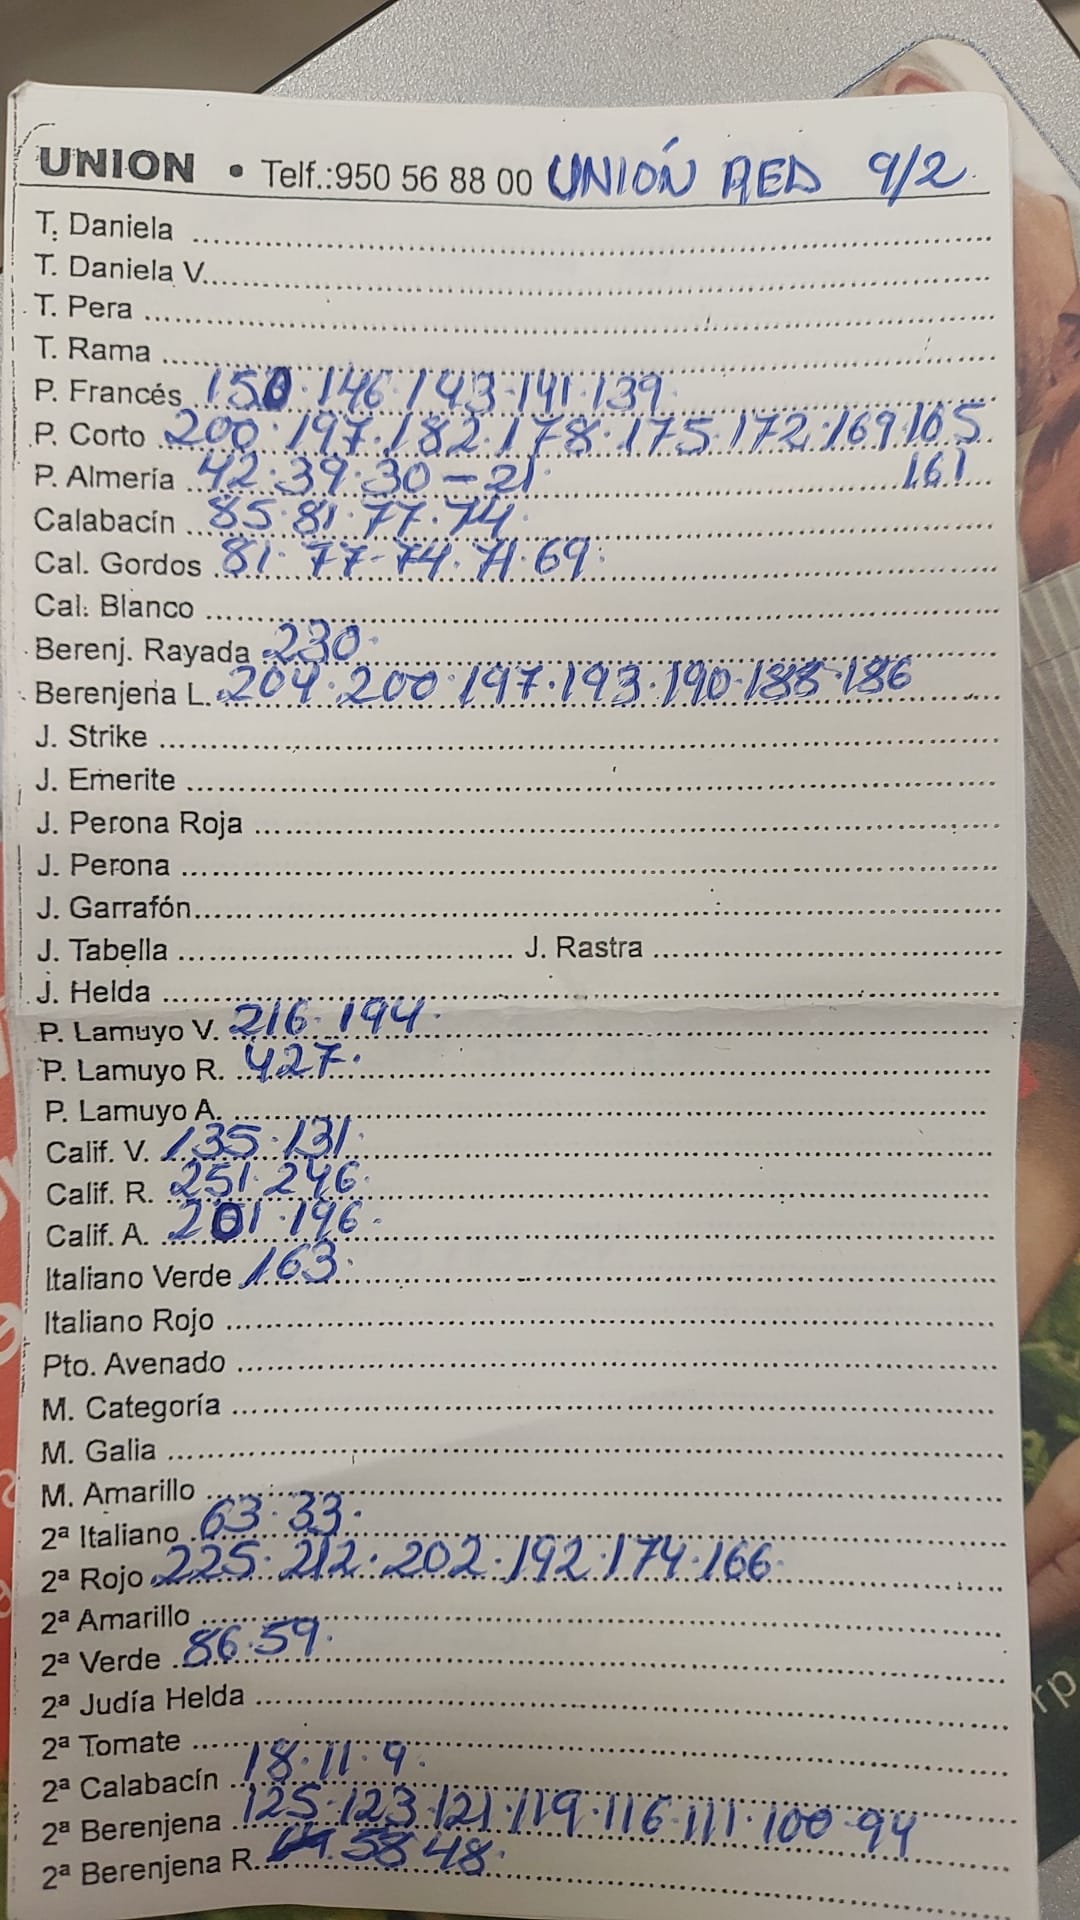 UNION • Telf.:950 56 88 00 UNIÓN RED 9/2.
T. Daniela
T. Daniela V.
T. Pera
T. Rama
P. Francés 150·146·143·141·139
P. Corto 200·197·182·178·175·172·169·165
P. Almería 42·39·30-21 161
Calabacín 85·81·77·74
Cal. Gordos 81·77-74·71·69
Cal. Blanco
Berenj. Rayada 230
Berenjena L. 204·200·197·193·190·188·186
J. Strike
J. Emerite
J. Perona Roja
J. Perona
J. Garrafón
J. Tabella J. Rastra
J. Helda
P. Lamuyo V. 216·194
P. Lamuyo R. 427
P. Lamuyo A.
Calif. V. 135·131
Calif. R. 251·246
Calif. A. 201·196
Italiano Verde 163
Italiano Rojo
Pto. Avenado
M. Categoría
M. Galia
M. Amarillo
2ª Italiano 63·33
2ª Rojo 225·212·202·192·174·166
2ª Amarillo
2ª Verde 86·59
2ª Judía Helda
2ª Tomate
2ª Calabacín 18·11·9
2ª Berenjena 125·123·121·119·116·111·100·94
2ª Berenjena R. 58 48
rp